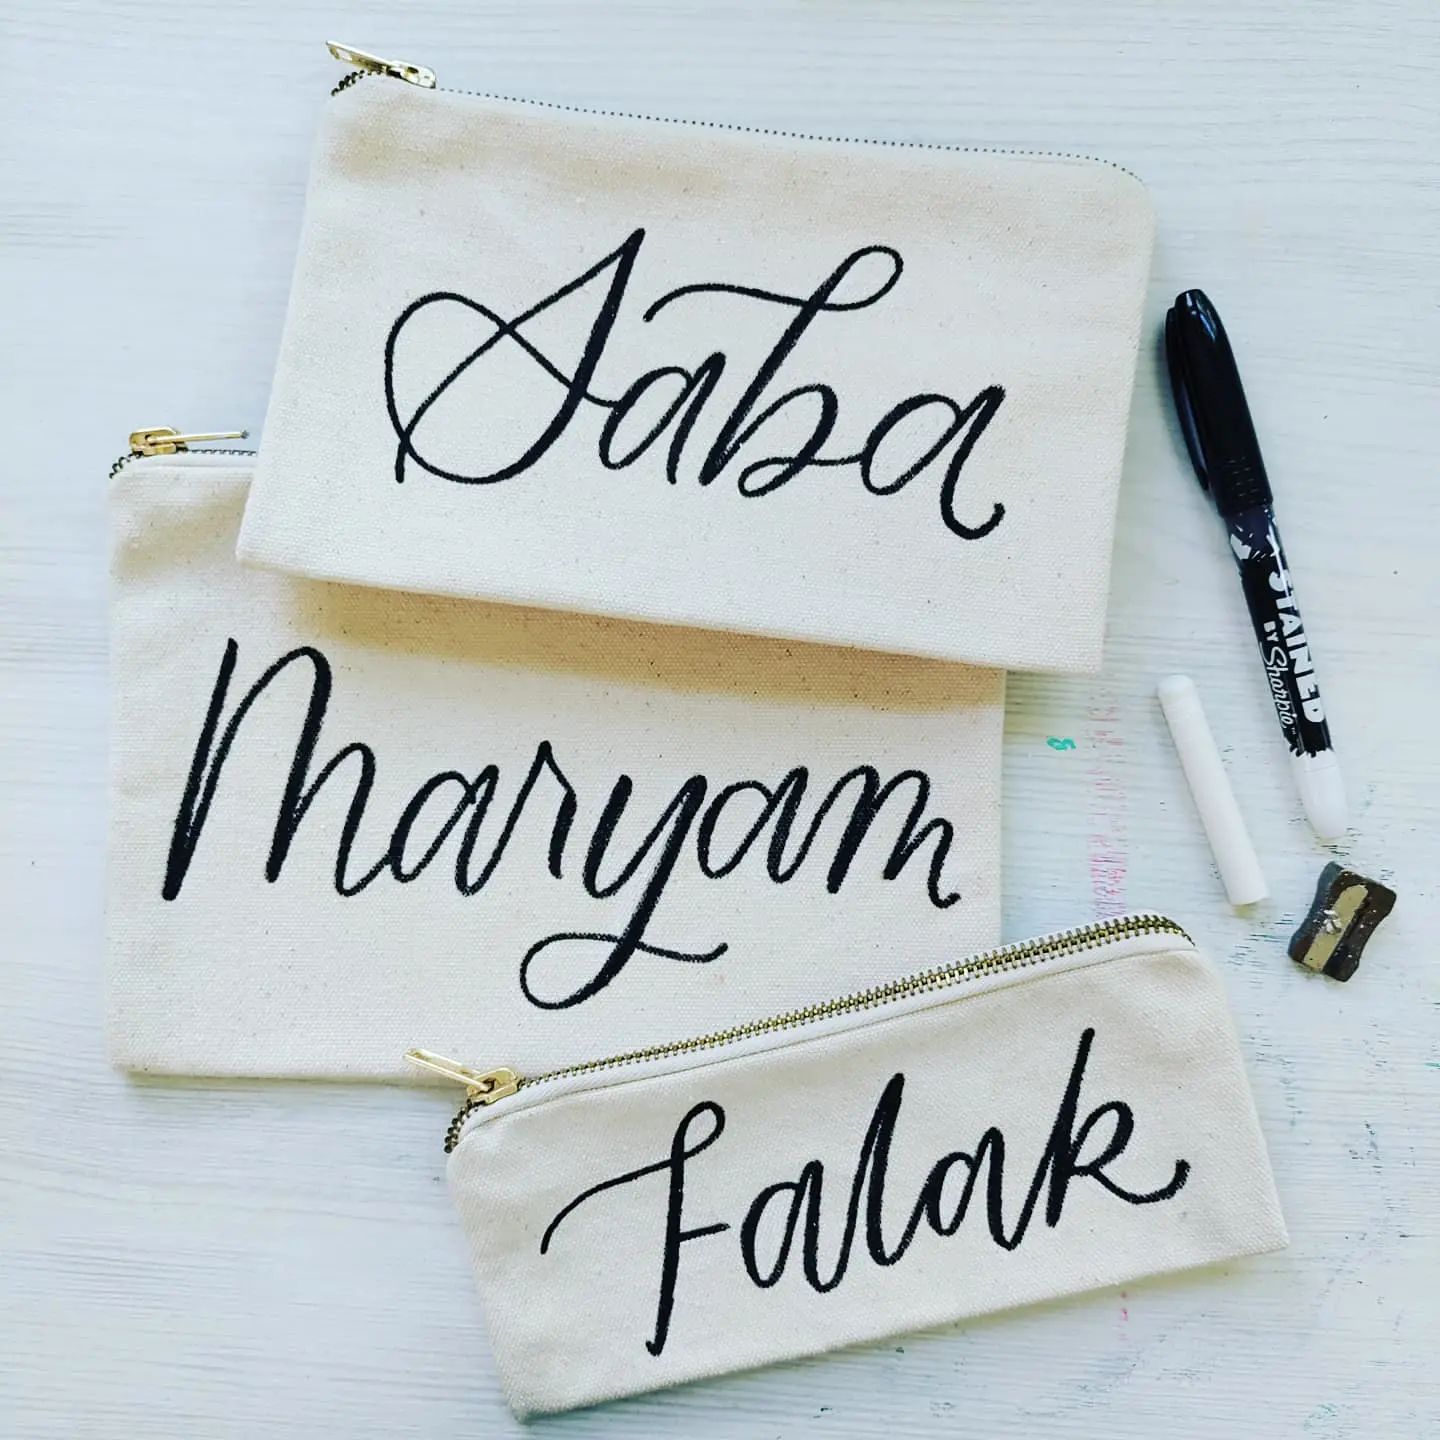 Saba
Maryam
Falak
STAINED
BY Sharpie